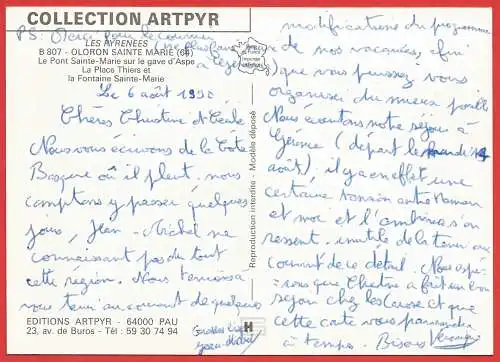 COLLECTION ARTPYR
LES PYRENEES
B 807 - OLORON SAINTE MARIE (64)
Le Pont Sainte-Marie sur le gave d'Aspe
La Place Thiers et
la Fontaine Sainte-Marie
PS: Merci pour le courrier
Le 6 août 1990
Chères Christine et Cécile
Nous vous écrivons de la Côte
Basque où il pleut. nous
comptons y passer quelques
jours, Jean-Michel ne
connaissant pas du tout
cette région. Nous tenions à
vous tenir au courant de quelques
Grosses bises
Jean-Michel
EDITIONS ARTPYR - 64000 PAU
23, av. de Buros - Tél : 59 30 74 94
Reproduction interdite - Modèle déposé
H
modifications du programme
de nos vacances, afin
que vous puissiez vous
organiser du mieux possible
Nous écourtons notre séjour à
(départ le
août), il y a en effet une
certaine tension entre Maman
et moi et l'ambiance s'en
ressent. inutile de la tenir au
courant de ce détail. Nous espé-
rons que Christine a fait un bon
séjour chez les et que
cette carte vous parviendra
à temps. Bisous Véronique